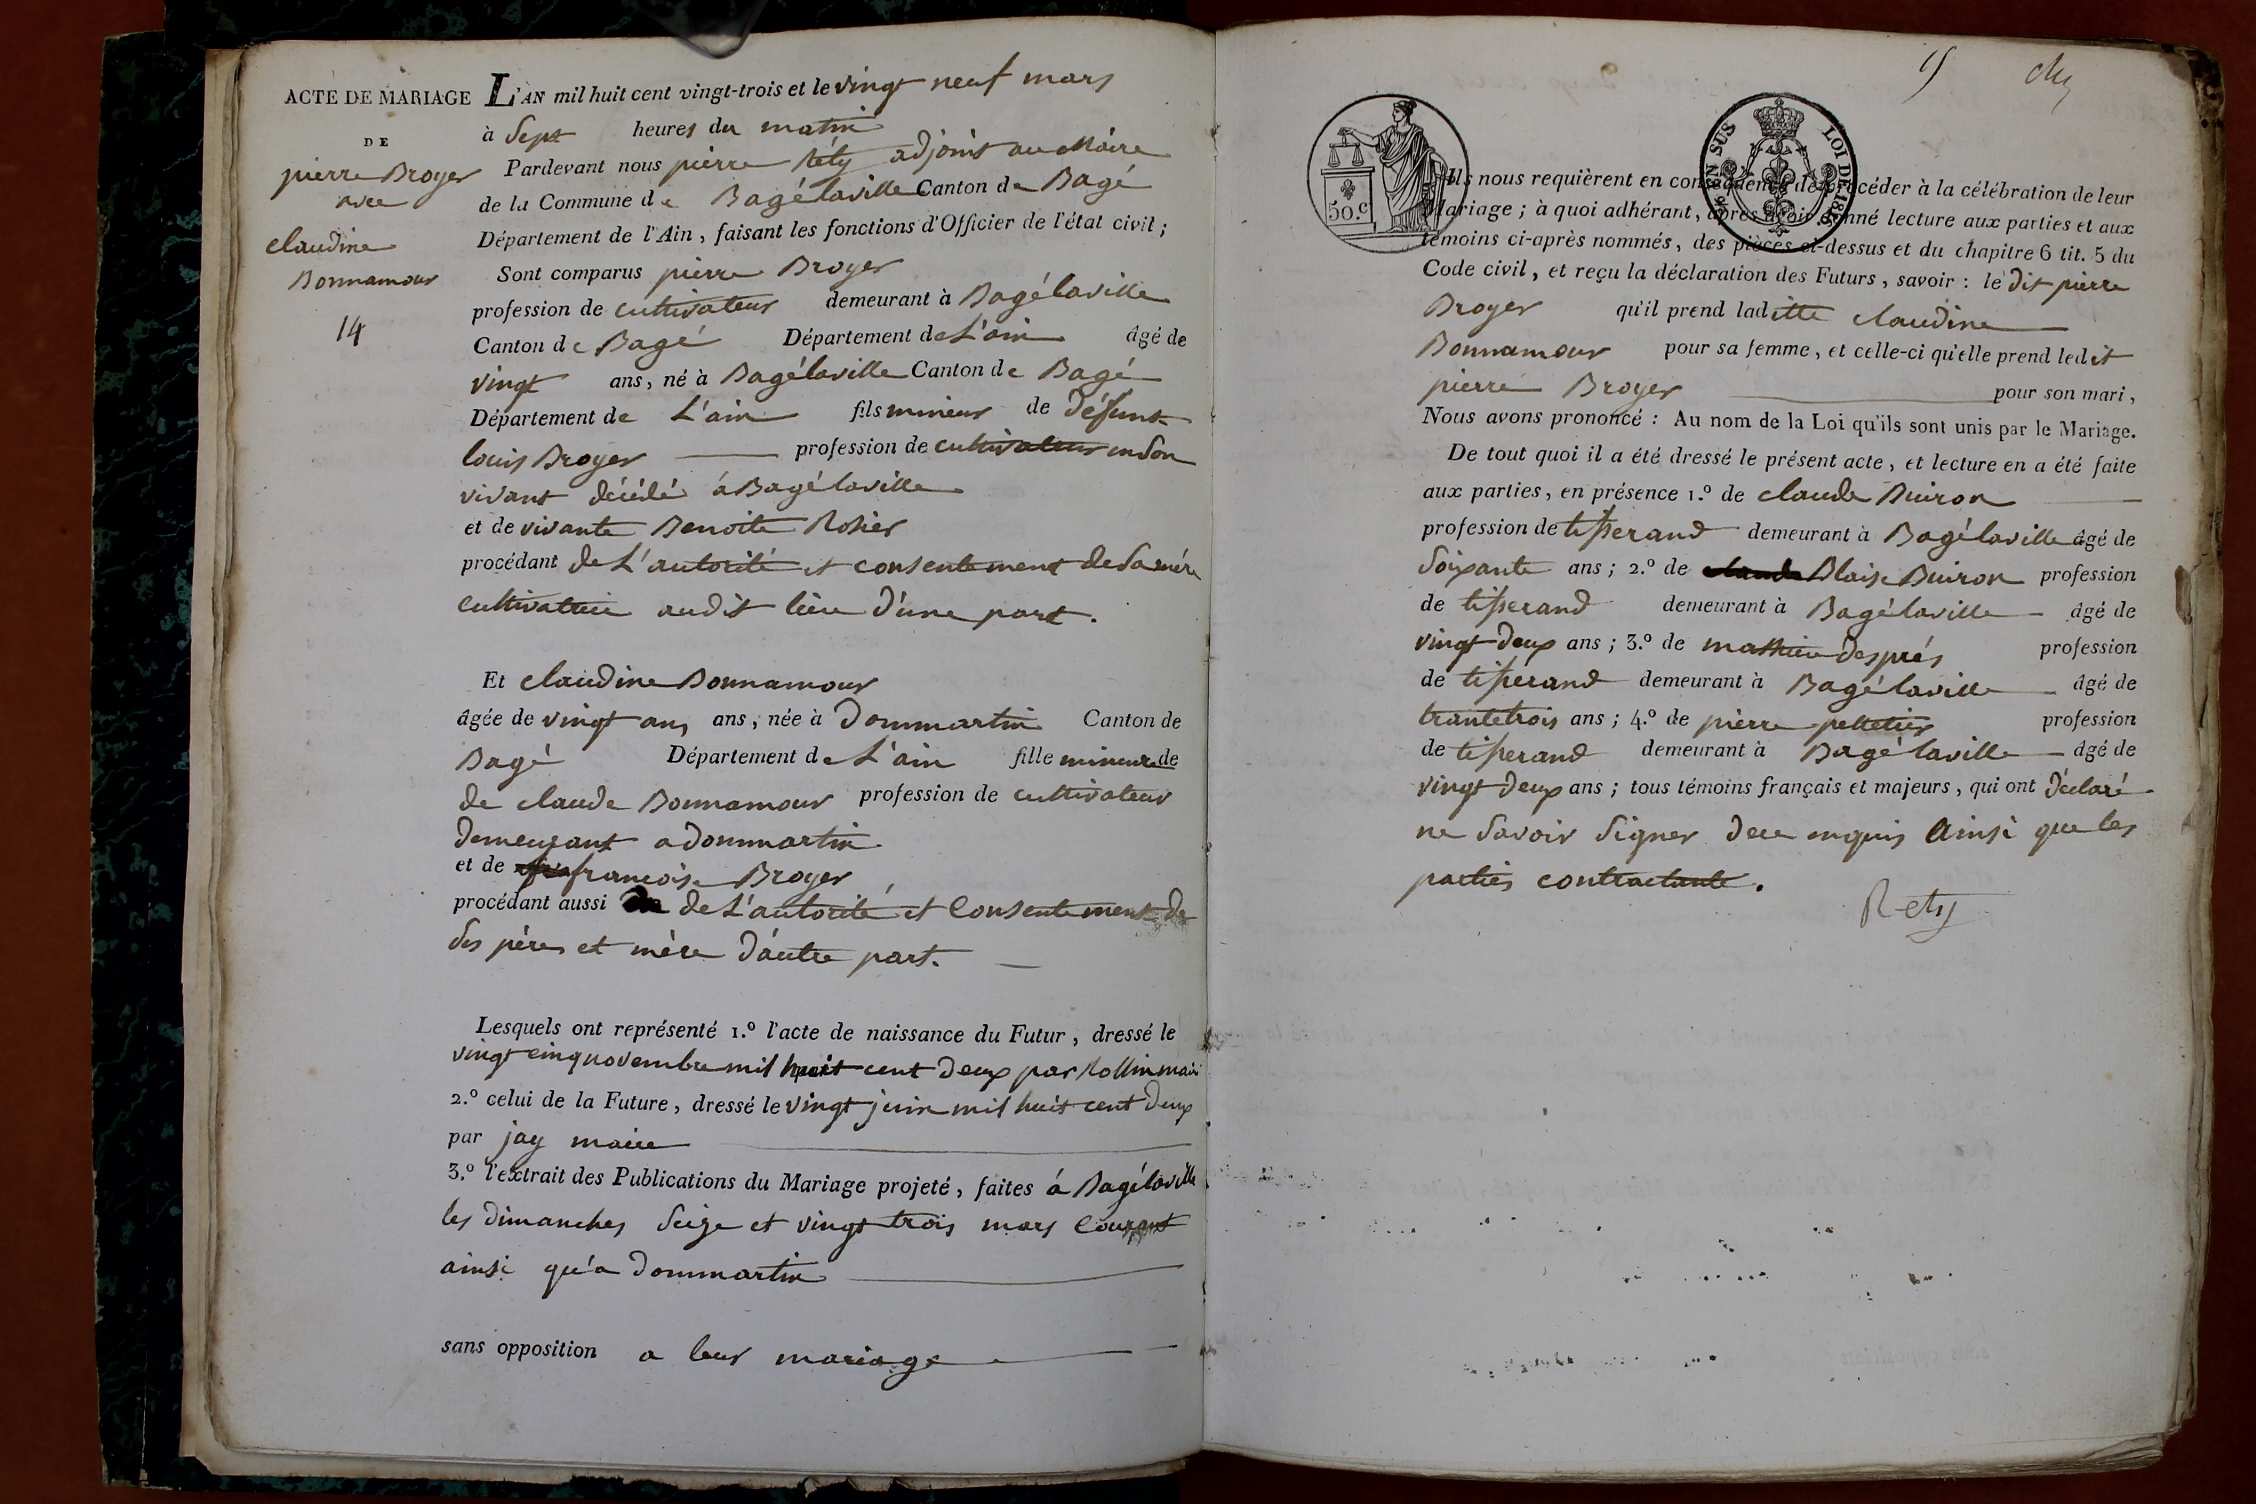 ACTE DE MARIAGE
DE
pierre Broyer
avec
claudine
Bonnamour
14
L'AN mil huit cent vingt-trois et le vingt neuf mars
à Sept heures du matin
Pardevant nous pierre Réty adjoint au Maire
de la Commune de Bagélaville Canton de Bagé
Département de l'Ain, faisant les fonctions d'Officier de l'état civil ;
Sont comparus pierre Broyer
profession de cultivateur demeurant à Bagélaville
Canton de Bagé Département de L'ain âgé de
vingt ans, né à Bagélaville Canton de Bagé
Département de L'ain fils mineur de défunt
louis Broyer profession de cultivateur en Son
vivant décédé à Bagélaville
et de vivante Benoite Rosier
procédant de L'autorité et consentement de Sa mère
cultivatrice audit lieu d'une part.
Et claudine Bonnamour
âgée de vingt ans ans, née à Dommartin Canton de
Bagé Département de L'ain fille mineure de
de claude Bonnamour profession de cultivateur
demeurant a dommartin
et de françoise Broyer
procédant aussi de L'autorité et Consentement de
Ses père et mère d'autre part.
Lesquels ont représenté 1.º l'acte de naissance du Futur, dressé le
vingt cinq novembre mil huit cent deux par Rollin maire
2.º celui de la Future, dressé le vingt juin mil huit cent deux
par jay maire
3.º l'extrait des Publications du Mariage projeté, faites à Bagélaville
les dimanches Seize et vingt trois mars Courant
ainsi qu'a dommartin
sans opposition a leur mariage
50.c
EN SUS
LOI DE 1816
Ils nous requièrent en conséquence de procéder à la célébration de leur
Mariage ; à quoi adhérant, après avoir donné lecture aux parties et aux
témoins ci-après nommés, des pièces ci-dessus et du chapitre 6 tit. 5 du
Code civil, et reçu la déclaration des Futurs, savoir : le dit pierre
Broyer qu'il prend laditte claudine
Bonnamour pour sa femme, et celle-ci qu'elle prend ledit
pierre Broyer pour son mari,
Nous avons prononcé : Au nom de la Loi qu'ils sont unis par le Mariage.
De tout quoi il a été dressé le présent acte, et lecture en a été faite
aux parties, en présence 1.º de claude Buiron
profession de tisserand demeurant à Bagélaville âgé de
Soixante ans ; 2.º de claude Blaise Buiron profession
de tisserand demeurant à Bagélaville âgé de
vingt deux ans ; 3.º de mathieu després profession
de tisserand demeurant à Bagélaville âgé de
trantetrois ans ; 4.º de pierre pelletier profession
de tisserand demeurant à Bagélaville âgé de
vingt deux ans ; tous témoins français et majeurs, qui ont déclaré
ne Savoir Signer de ce enquis Ainsi que les
parties contractante.
Rety